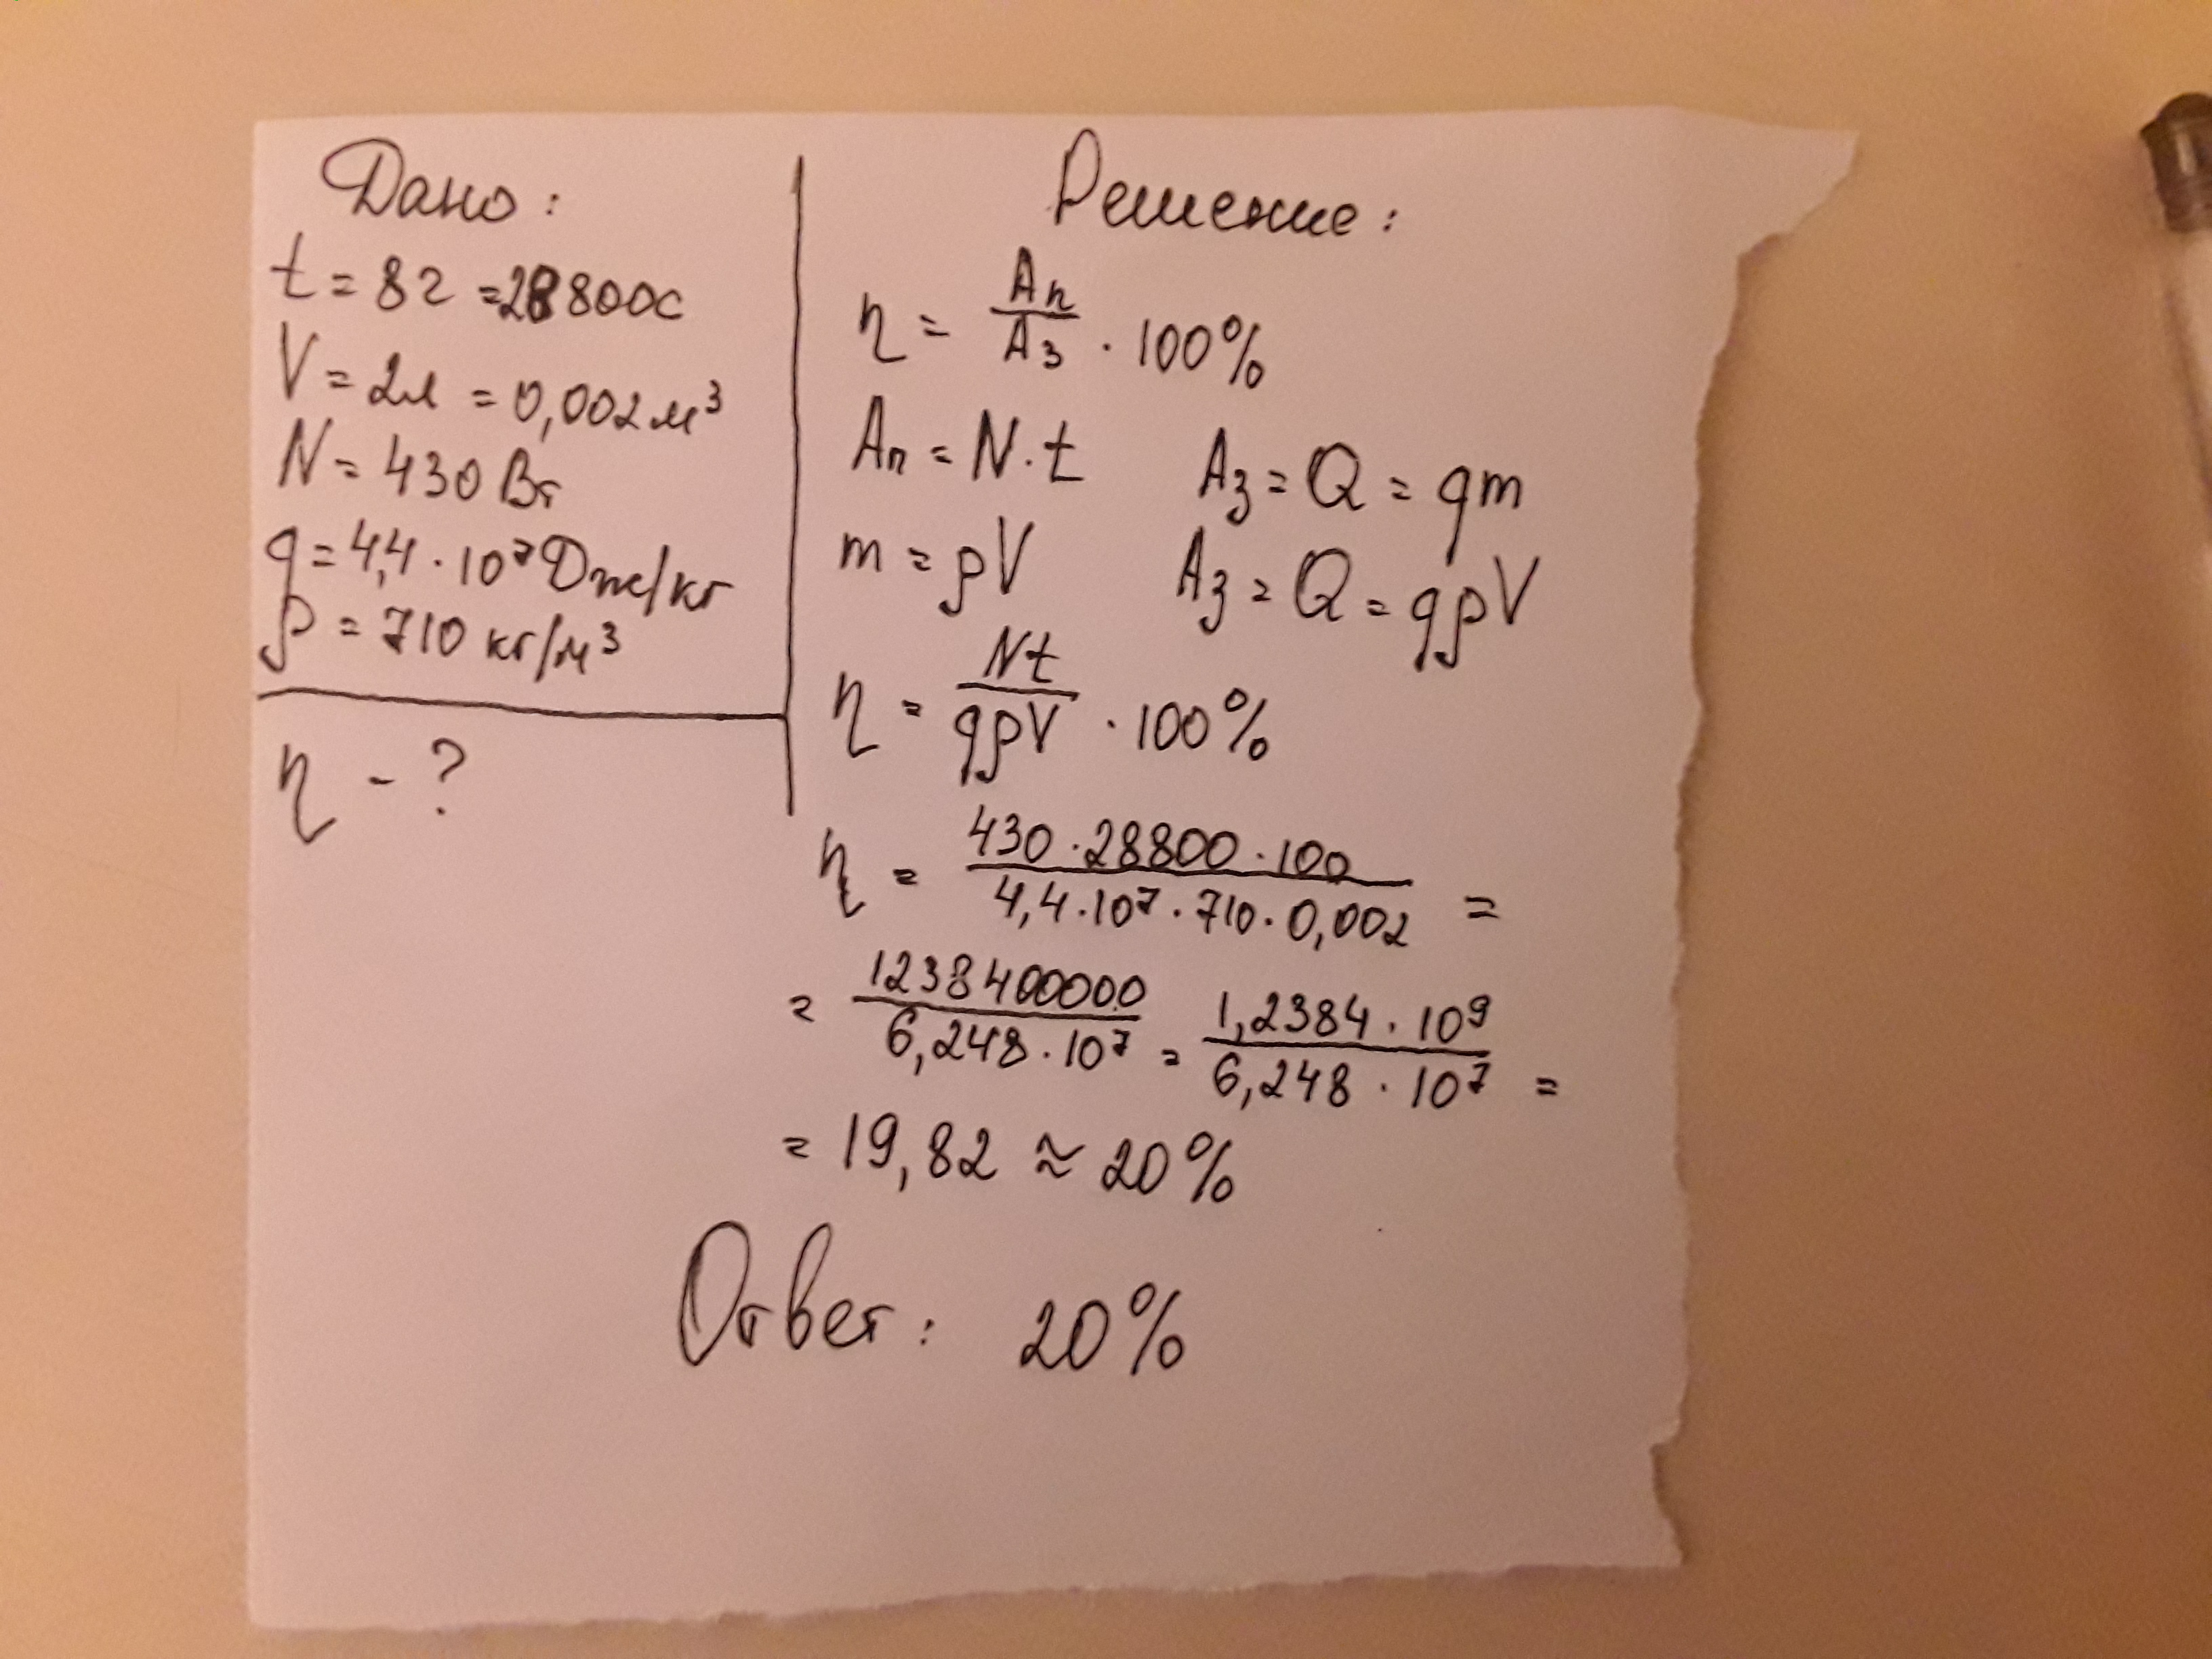 Дано:
t = 8г = 28800с
V = 2л = 0,002 м³
N = 430 Вт
q = 4,4 · 10⁷ Дж/кг
ρ = 710 кг/м³
η - ?
Решение:
η = Aп/Aз · 100%
Aп = N · t Aз = Q = qm
m = ρV Aз = Q = qρV
η = Nt/qρV · 100%
η = 430 · 28800 · 100 / 4,4 · 10⁷ · 710 · 0,002 =
= 1238400000 / 6,248 · 10⁷ = 1,2384 · 10⁹ / 6,248 · 10⁷ =
= 19,82 ≈ 20%
Ответ: 20%